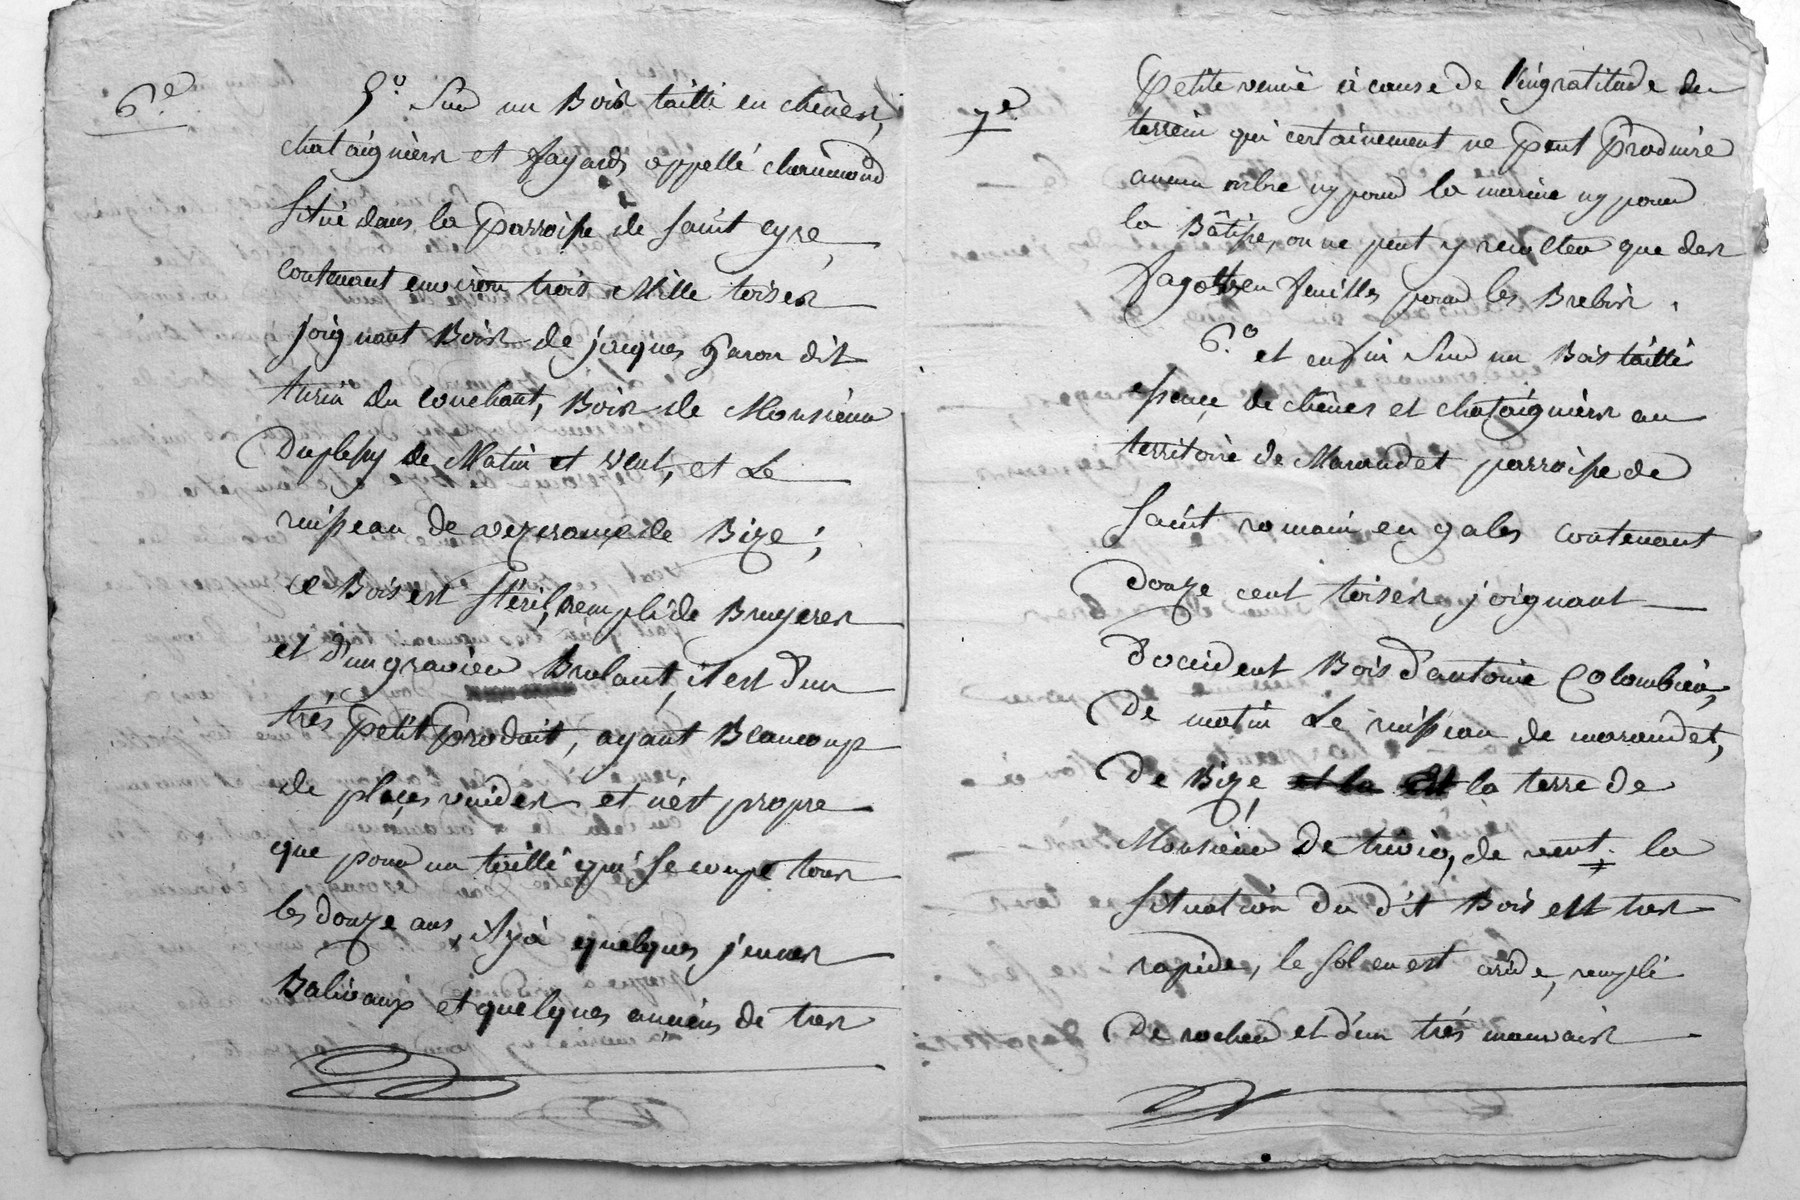 6e.
5o. Sur un Bois taillé en chênes,
chataigniers et fayards appellé chaumond
Situé dans la parroisse de saint cyre,
contenant environ trois Mille toises
joignant Bois de jacques garon dit
turin du couchant, Bois de Monsieur
Duplessy de Matin et vent, et Le
ruisseau de vezeronce de Bize;
ce Bois est stéril, rempli de Bruyeres
et d'un gravier Brulant, il est d'un
trés petit produit, ayant Beaucoup
de places vuides et n'est propre
que pour un taillé qui se coupe tous
les douze ans, il y a quelques jeunes
Baliveaux et quelques anciens de tres
7e.
petite venuë à cause de l'ingratitude du
terrein qui certainement ne peut produire
aucun arbre ny pour la marine ny pour
la Bâtisse, on ne peut y recolter que des
fagots en feuilles pour les Brebis.
6.o et enfin Sur un Bois taillé
essence de chênes et chataigniers au
territoire de Maraudet parroisse de
saint romain en gales contenant
Douze cent toises joignant
d'occident Bois d'antoine Colombier,
De matin Le ruisseau de maraudet,
De Bize la terre de
Monsieur De trivio, de vent. la
situation du dit Bois est tres
rapide, le sol en est aride, rempli
De rocher et d'un trés mauvais